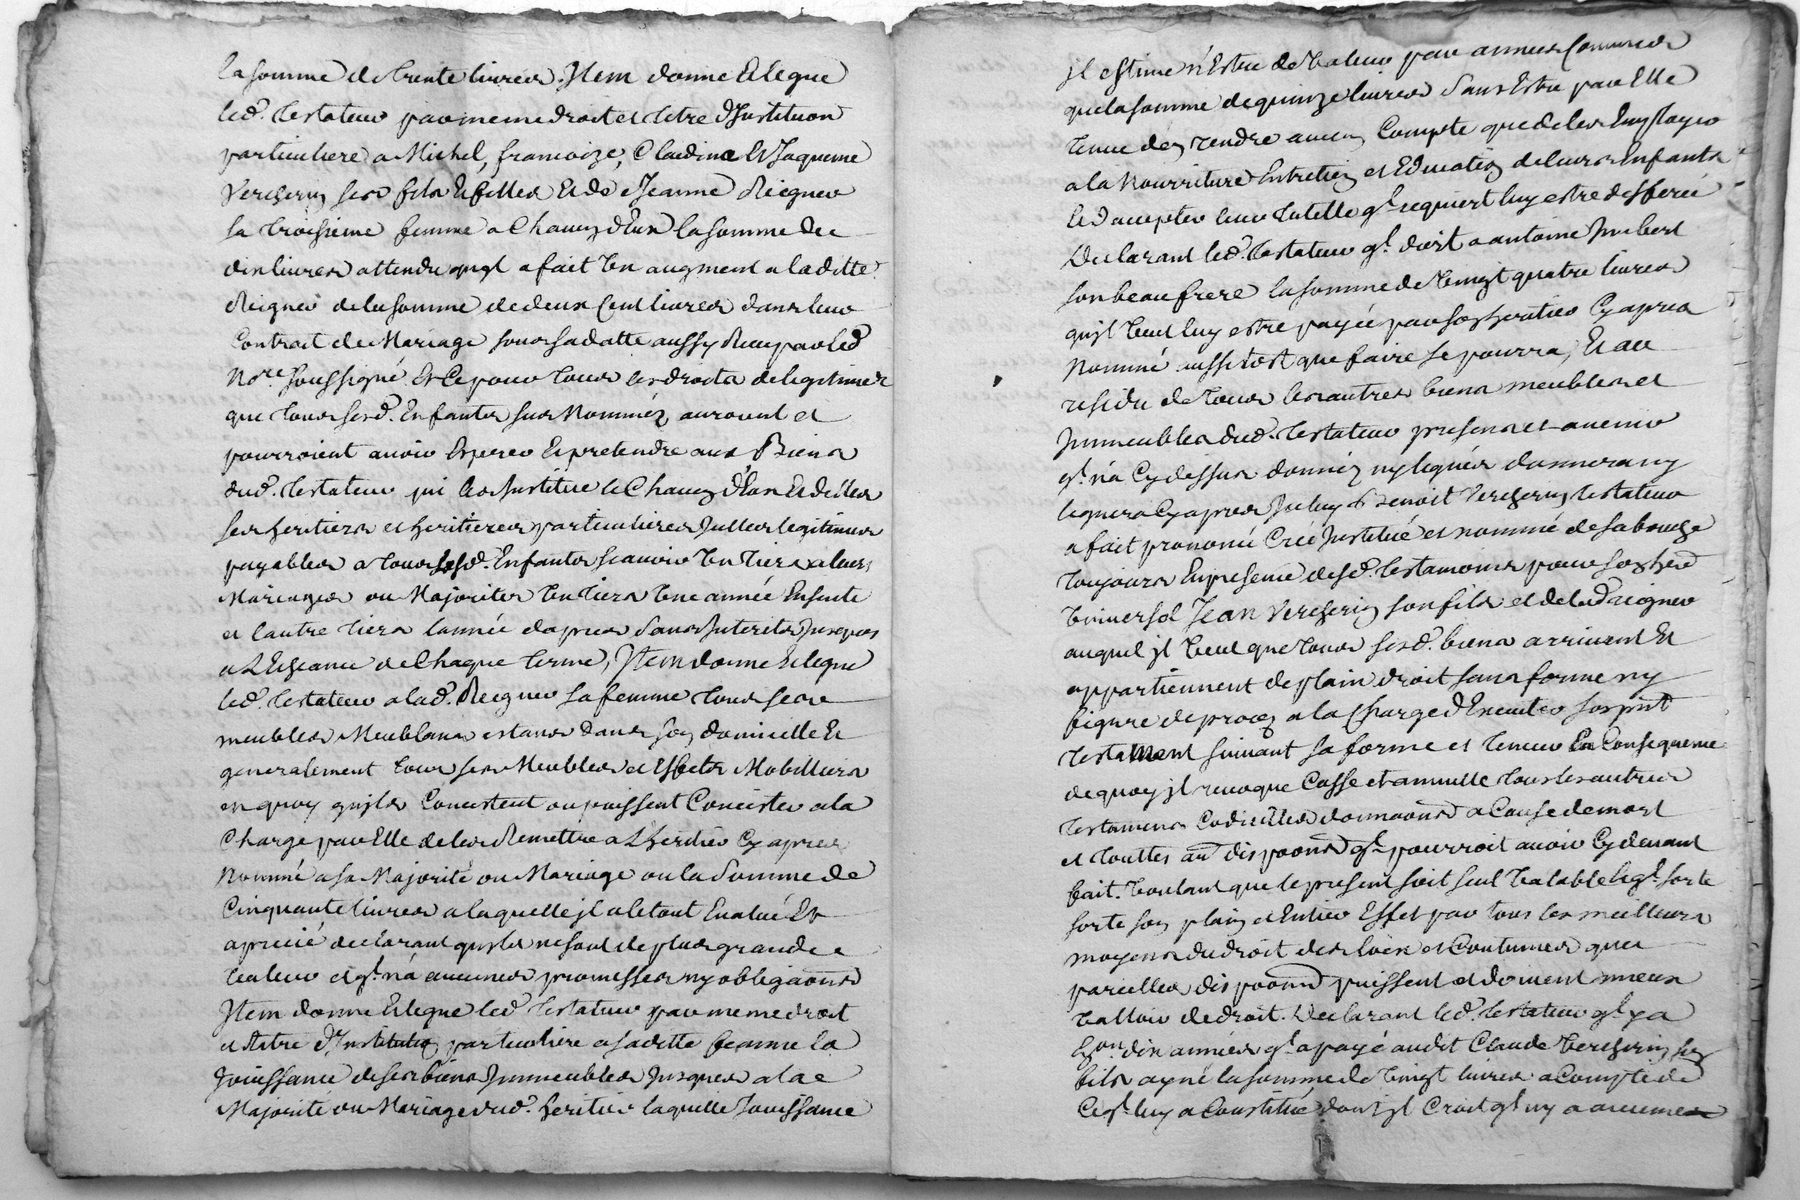 la somme de trente livres. Item donne et legue
led. testateur par meme droit et titre d'Institution
particuliere a Michel, francoize, Claudine et Jaqueme
Vercherin ses fils et filles et de Jeanne Reigner
sa troisieme femme a chacun d'Eux la somme de
dix livres attendu qu'il a fait un augment a la ditte
Reigner de la somme de deux cent livres dans leur
Contrat de Mariage sous sa datte aussy Receu par led
Nore. soussigné et ce pour tous les droits de legitime et
que tous sesd. Enfants sus Nommez auroient et
pourroient avoir Esperer et pretendre aux Biens
dud. testateur qui les Institue le chacun d'Eux et d'elles
ses heritiers et heritieres particulieres Juttes legitimes
payables a tous sesd. Enfants scavoir un tiers a leurs
Mariages ou Majorites un tiers une année Ensuite
et l'autre tiers l'année d'apres sans Interets Jusques
a L'Echeance de chaque terme, Item donne et legue
led. testateur a lad. Reigner sa femme tous ses
meubles Meublans estans dans son domicille et
generalement tous ses Meubles et Effets Mobilliers
en quoy qu'ils Concistent ou puissent Concister a la
Charge par Elle de les Remettre a L'heritier Cy apres
Nommé a sa Majorité ou Mariage ou la Somme de
Cinquante livres a laquelle il a le tout Evalué Et
aprecié declarant qu'ils ne sont de plus grande
valeur et ql. n'a aucunes promesses ny obligaons
Item donne et legue led. testateur par meme droit
et titre d'Institution particuliere a sa ditte femme la
Jouissance de ses biens Immeubles Jusques a la
Majorité ou Mariage dud. heritier laquelle Jouissance
il estime n'Estre de valeur par annees Comunes
que la somme de quinze livres sans Estre par Elle
tenue d'en rendre aucun Compte que de les Employer
a la Nourriture Entretien et Education de leurs Enfants
et d'accepter leur tutelle ql. requiert luy estre desferée
Declarant led. testateur ql. doit a antoine Imbert
son beau frere la somme de vingt quatre livres
qu'il veut luy estre payée par son heritier Cy apres
Nommé aussitost que faire se pourra, Et au
residu de tous les autres biens meubles et
Immeubles dud. testateur presens et avenir
ql. n'a Cy dessus donnéz ny leguéz donnera ny
leguera Cy apres Iceluy Benoit Vercherin testateur
a fait prononcé Créé Institué et nommé de sa bouche
toujours En presence desd. tesmoins pour son herd
universel Jean Vercherin son fils et de lad Reigner
auquel il veut que tous sesd. biens arrivent Et
appartiennent de plain droit sans forme ny
figure de procez a la Charge d'Executer son pnt
testament suivant sa forme et teneur En Consequence
de quoy il revoque Casse et annulle tous les autres
testamens Codicilles donnaons a Cause de mort
et touttes aus dispoons ql. pourroit avoir Cy devant
fait. voulant que le present soit seul valable et ql. sorte
sorte son plain et Entier Effet par tous les meilleurs
moyens du droit des loix et Coutumes que
pareilles dispoons puissent et doivent mieux
valloir de droit. Declarant led. testateur ql. y a
Eon. dix annees ql. a payé audit Claude Vercherin son
fils ayné la somme de vingt livres a Compte de
Ce ql. luy a Constitué dont il Croit ql. ny a aucune